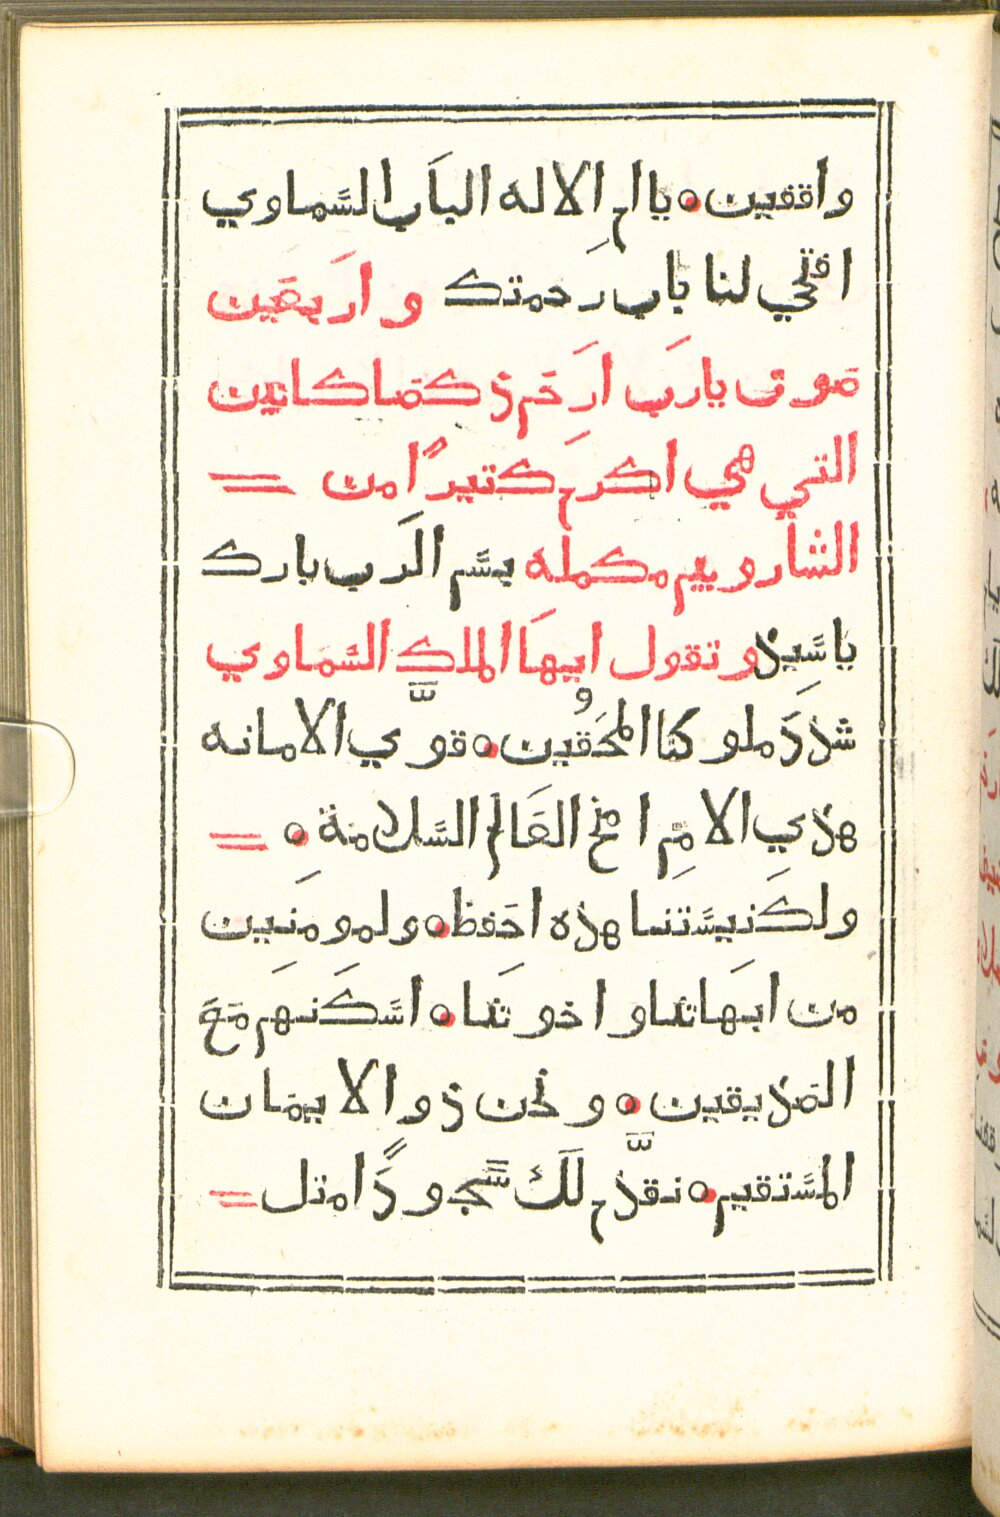 واقفين ه ياام الاله الباب السَّماوي
افتحي لنا باب رَحمتك وارَبعَين
صَوت يارَب ارَحَم ذ كمَا كاين
التي هي اكرَم كتيرًا من =
الشارو بيم مكملَه بسَّم الرَب بارك
ياسَّيذ وتقول ايهَا الملك السَّمَاوي
شذدَ ملوكنا المحَقُوين ه قوّي الامانه
هذي الامِم امنح العَالم السَّلامة ه =
ولكَنيسَّتنا هذه احَفظ ه ولمومنَين
من ابهَاتنا واخوتَنا ه اسَّكَنهَم مَعَ
الصَذيقين ه ونحن ذو الايمَان
المسَّتقيم ه نقذّم لَك سَّجودًا متل =